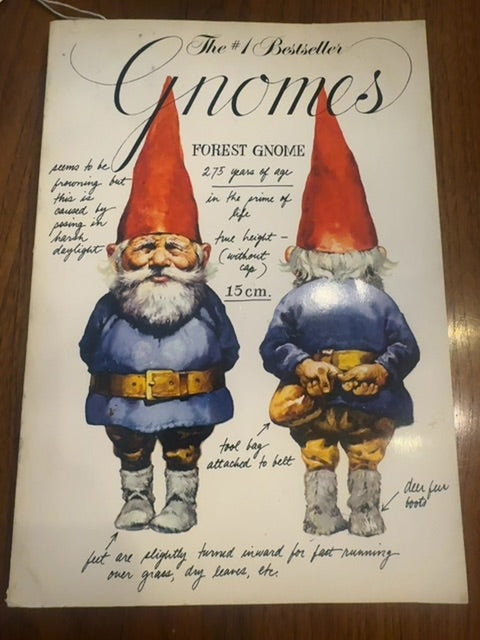 The #1 Bestseller
Gnomes
FOREST GNOME
275 years of age
in the prime of
life
true height —
(without
cap)
15 cm.
seems to be
frowning but
this is
caused by
posing in
harsh
daylight
tool bag
attached to belt
deer fur
boots
feet are slightly turned inward for fast running
over grass, dry leaves, etc.